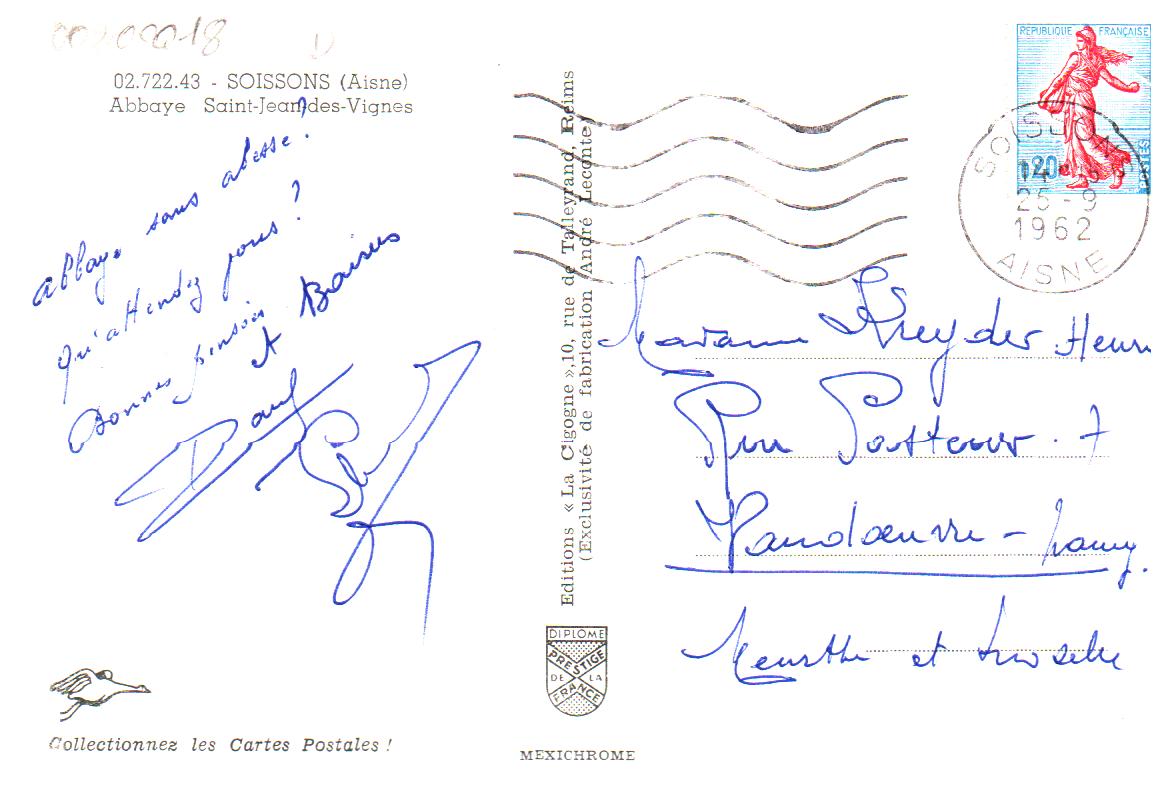 02.722.43 - SOISSONS (Aisne)
Abbaye Saint-Jean-des-Vignes
abbaye sans abesse ?
qu'attendez vous ?
Bonnes pensées
A
Paul
Editions « La Cigogne »,10, rue de Talleyrand, Reims
(Exclusivité de fabrication André Leconte)
DIPLOME
PRESTIGE
DE LA
FRANCE
MEXICHROME
Collectionnez les Cartes Postales !
REPUBLIQUE FRANÇAISE
0,20
POSTES
SOISSONS
25 - 9
1962
AISNE
Madame Kreyder Henri
Rue Pasteur . 7
Vandoeuvre - Nancy.
Meurthe et Moselle